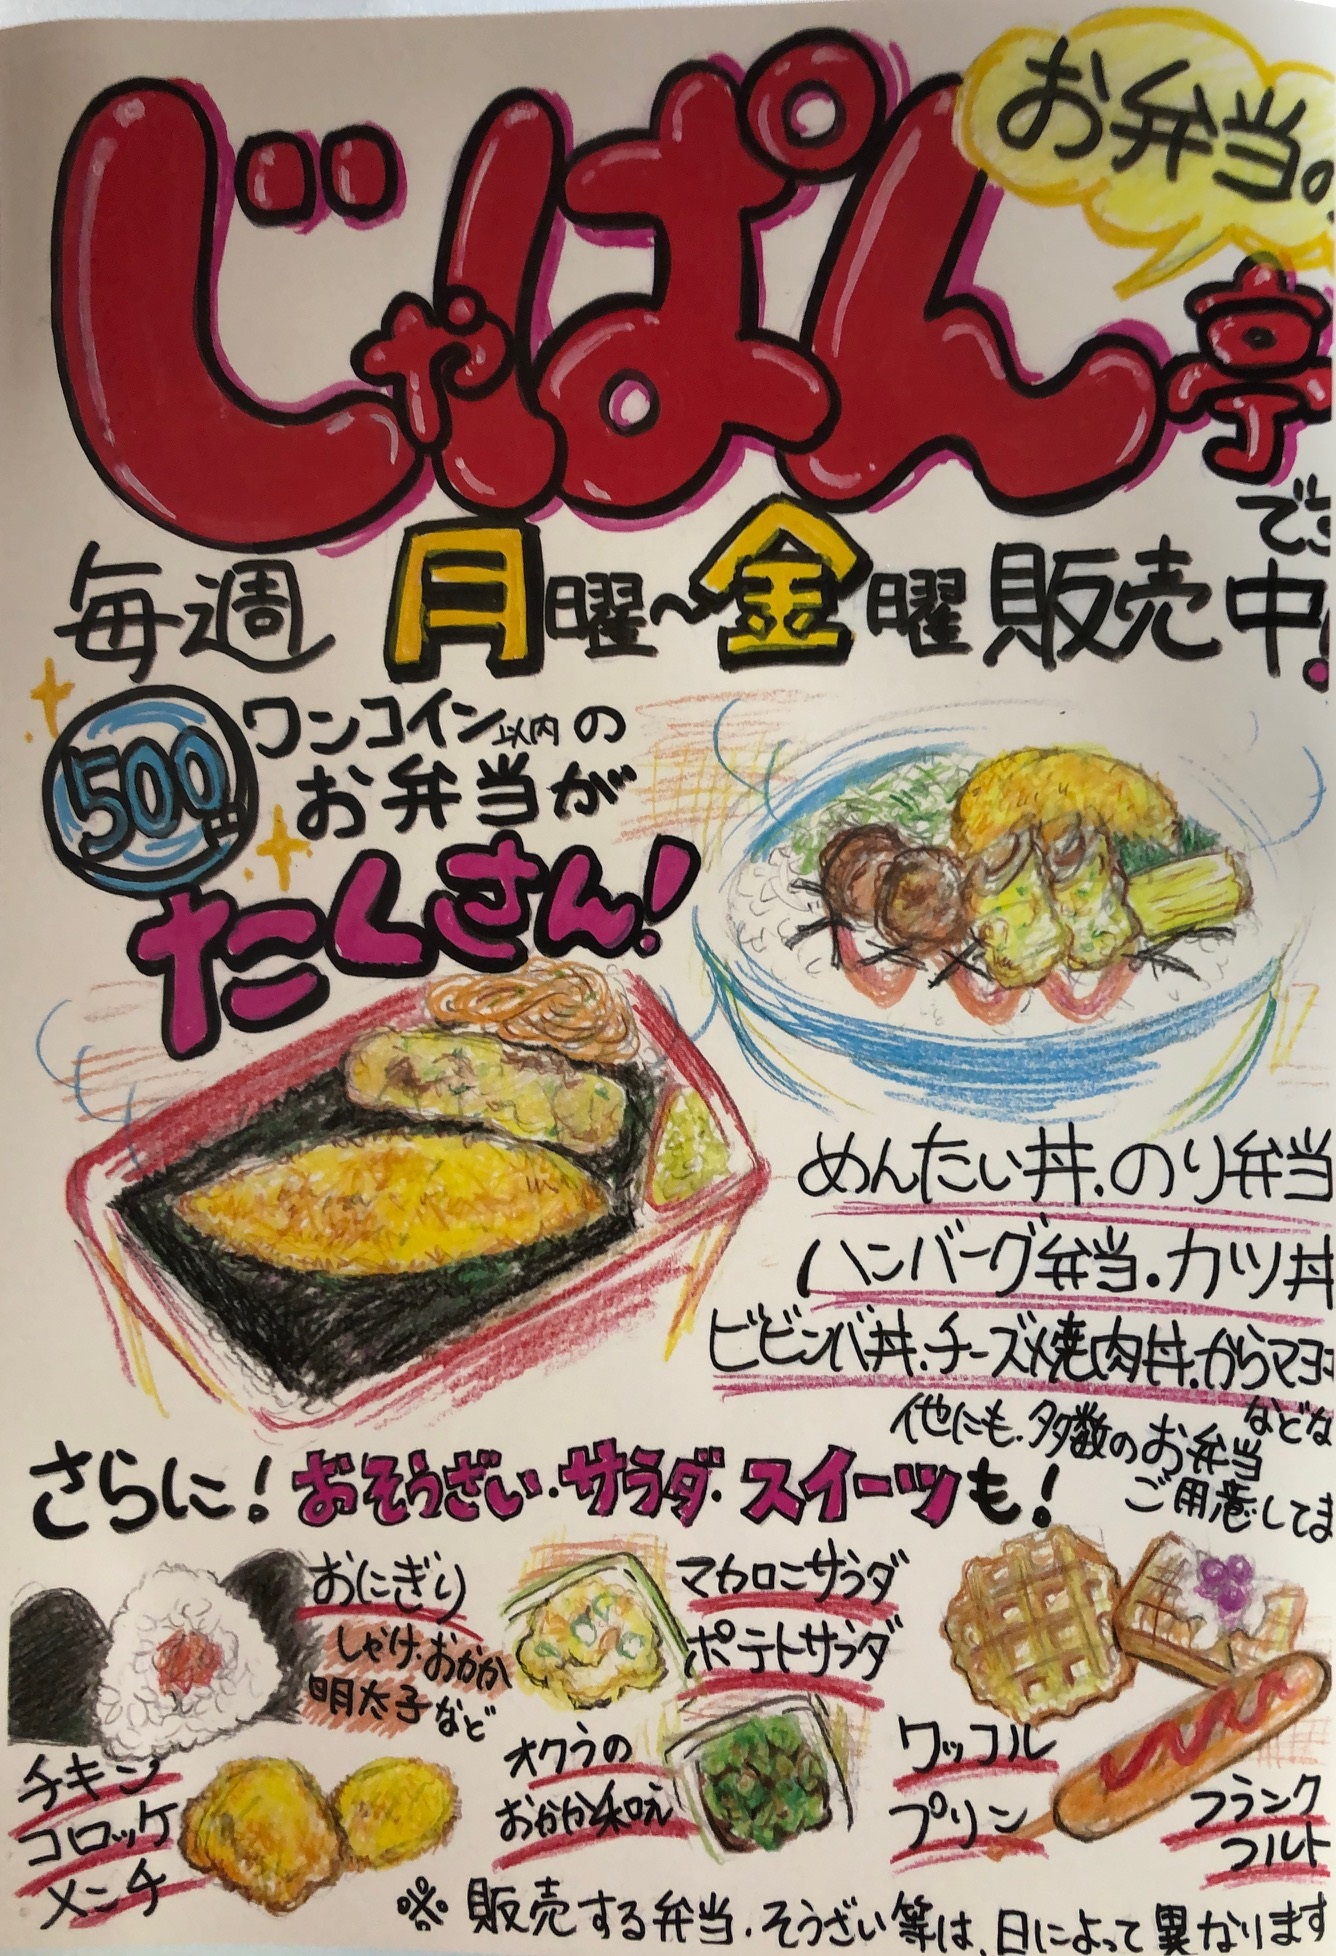 お弁当の
じゃぱん亭
です
毎週 月曜〜金曜 販売中!
500円 ワンコイン以内の
お弁当が
たくさん!
めんたい丼・のり弁当
ハンバーグ弁当・カツ丼
ビビンバ丼・チーズ焼肉丼・からマヨ
などな
他にも、多数のお弁当
ご用意してま
さらに! おそうざい・サラダ・スイーツも!
おにぎり
しゃけ・おかか
明太子など
マカロニサラダ
ポテトサラダ
チキン
コロッケ
メンチ
オクラの
おかか和え
ワッフル
プリン
フランク
フルト
※販売する弁当、そうざい等は、日によって異なります